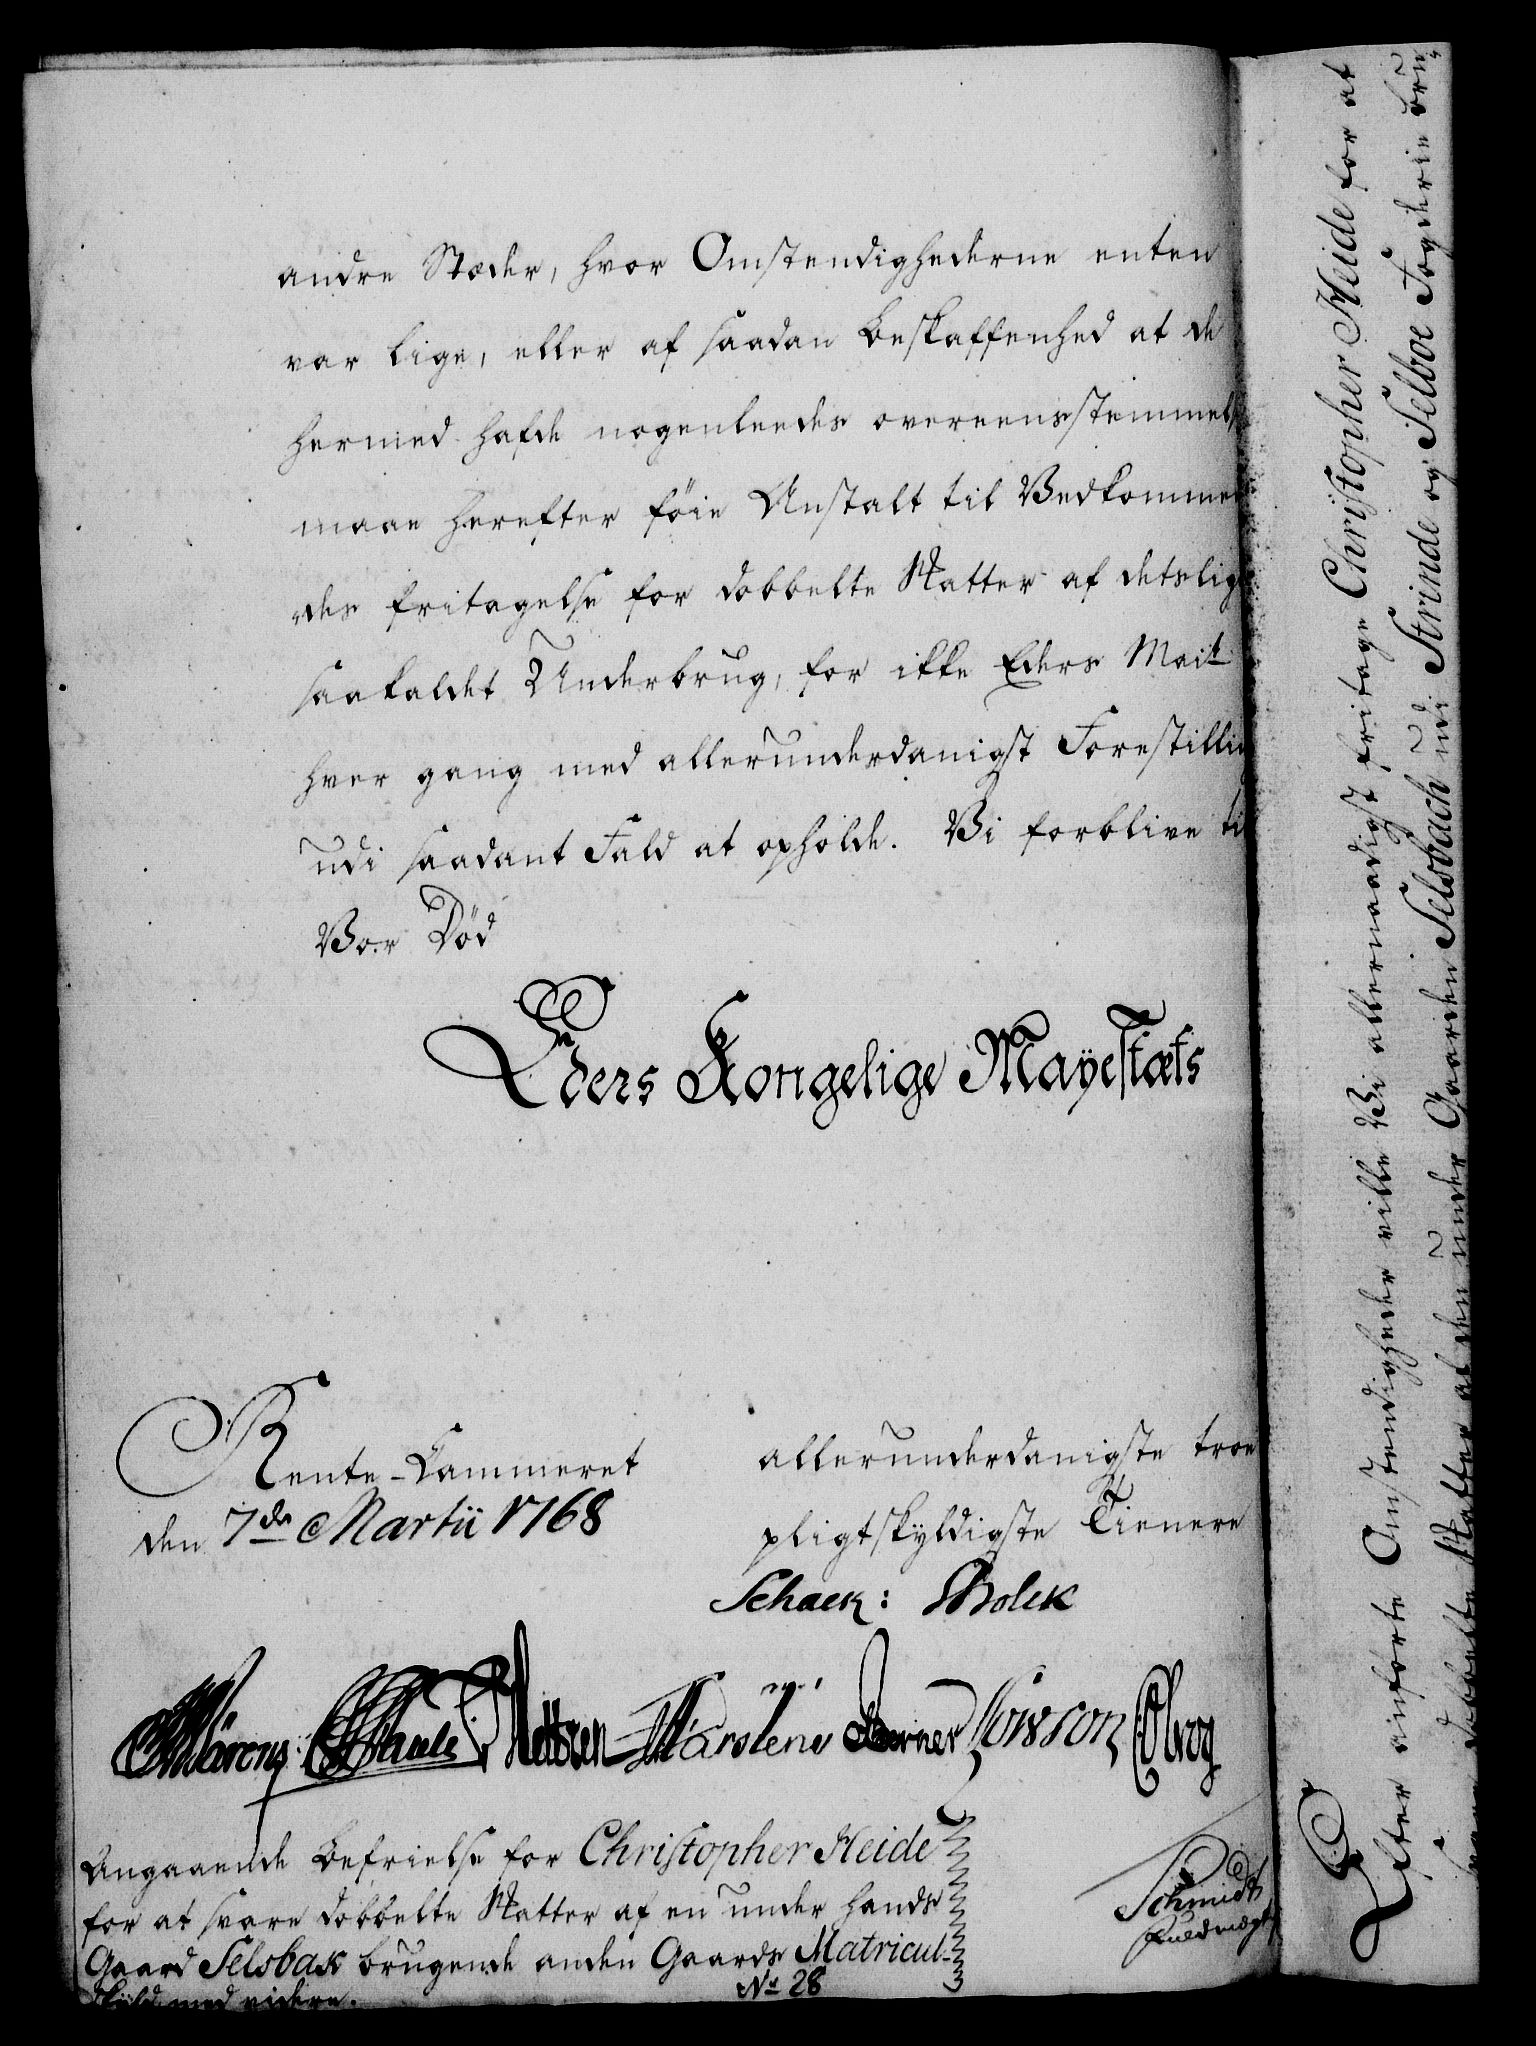 andre Stæder, hvor Omstendighederne enten
var lige, eller af saadan Beskaffenhed at de
hermed hafde nogenleedes overeensstemmels
maae herefter føie Anstalt til Vedkommen
des fritagelse for dobbelte Skatter af detslig
saakaldet Underbrug, for ikke Eders Mai.t
hver gang med allerunderdanigst Forestilling
udi saadant Fald at opholde. Vi forblive til
Vor Død
Eders Kongelige Mayestæts
Rente-Cammeret
den 7de Martii 1768
allerunderdanigste troe
pligtskyldigste Tienere
Schack: Holck
Berner
Angaaende Befrielse for Christopher Heide
for at svare dobbelte Skatter af en under hands
Gaard Selsbak brugende anden Gaards Matricul-
Skyld med videre.
No 28
Schmidt
Fuldmægtig
Efter anførte Omstendigheder ville Vi allernaadigst fritage Christopher Heide for at
svare dobbelte Skatter af den under Gaarden Selsbach udi Strinde og Selboe Fogderie bru-